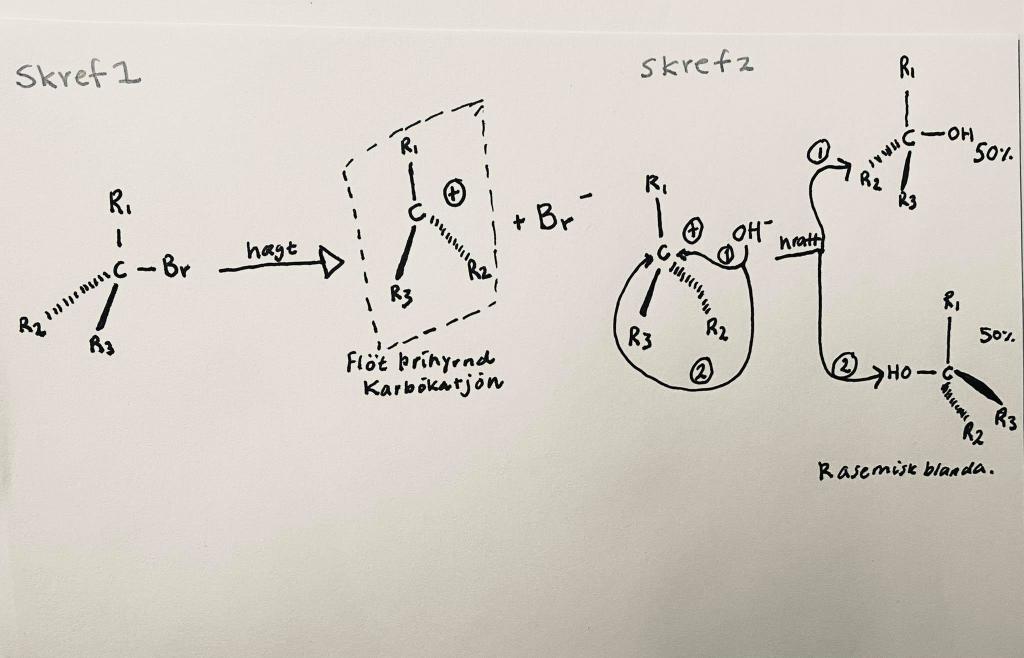 Skref 1
R₁
C – Br
R₂
R₃
hægt
R₁
C
⊕
R₂
R₃
+ Br⁻
Flöt þrihyrnd
Karbókatjón
Skref 2
R₁
⊕
C
OH⁻
①
R₃
R₂
②
hratt
①
R₁
C – OH
50%
R₂
R₃
②
R₁
50%
HO – C
R₃
R₂
Rasemisk blanda.